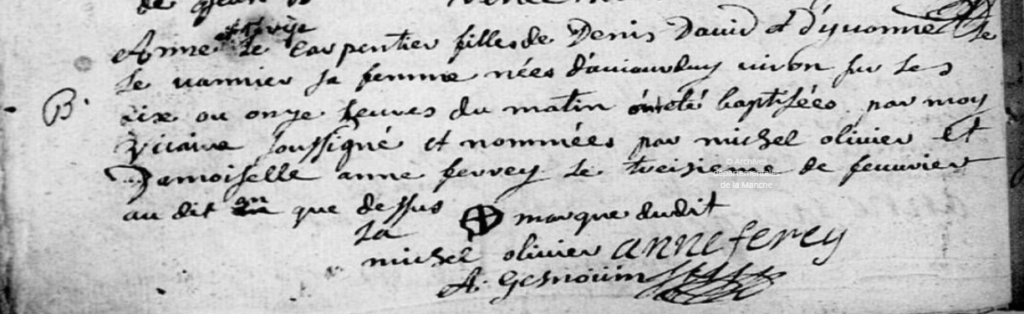 Anne le Carpentier filles de Denis Dauid et d'yuonne
le vannier sa femme nées d'auiourduy viron sur les
dix ou onze heures du matin ont eté baptisées par moy
B. vicaire soussigné et nommées par michel olivier et
Damoiselle anne ferrey le treisieme de feuurier
au dit an que dessus la marque dudit
michel olivier anne ferey
A. Gesnoüin
© Archives
de la Manche